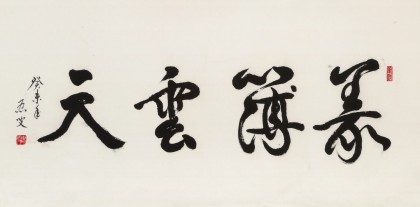 義薄雲天
癸未年